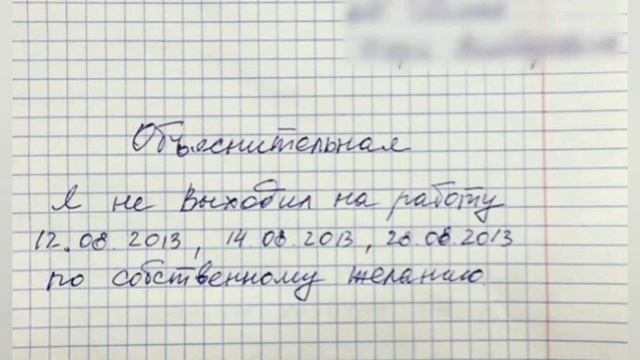 Объяснительная
Я не выходил на работу
12.08.2013, 14 08.2013, 28.08.2013
по собственному желанию